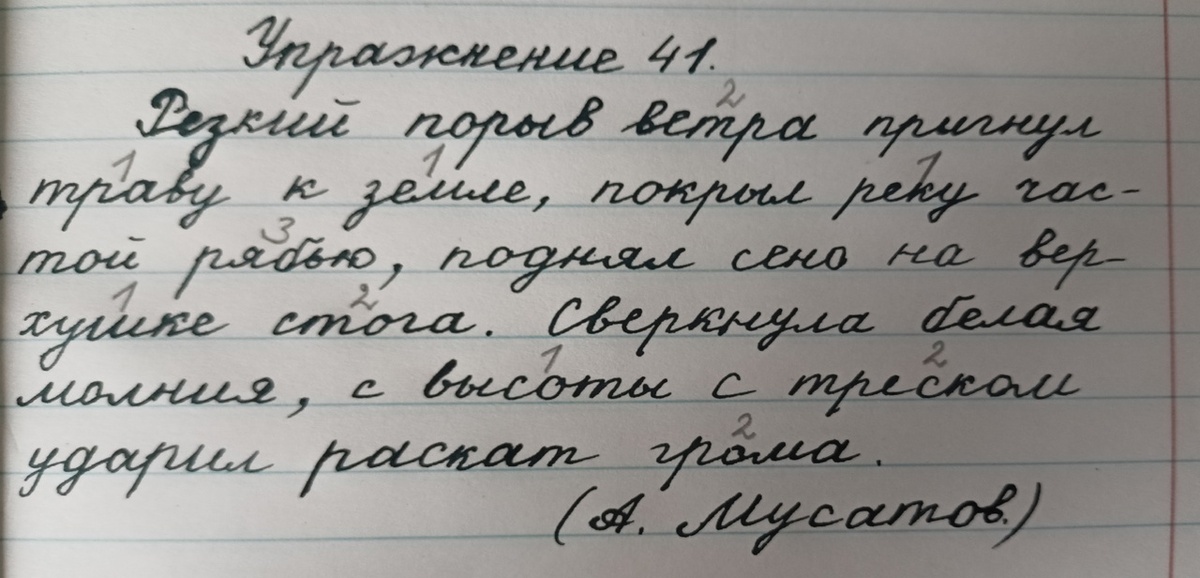 Упражнение 41.
2
Резкий порыв ветра пригнул
1 1 1
траву к земле, покрыл реку час-
3
той рябью, поднял сено на вер-
1 2
хушке стога. Сверкнула белая
1 2
молния, с высоты с треском
2
ударил раскат грома.
(А. Мусатов.)